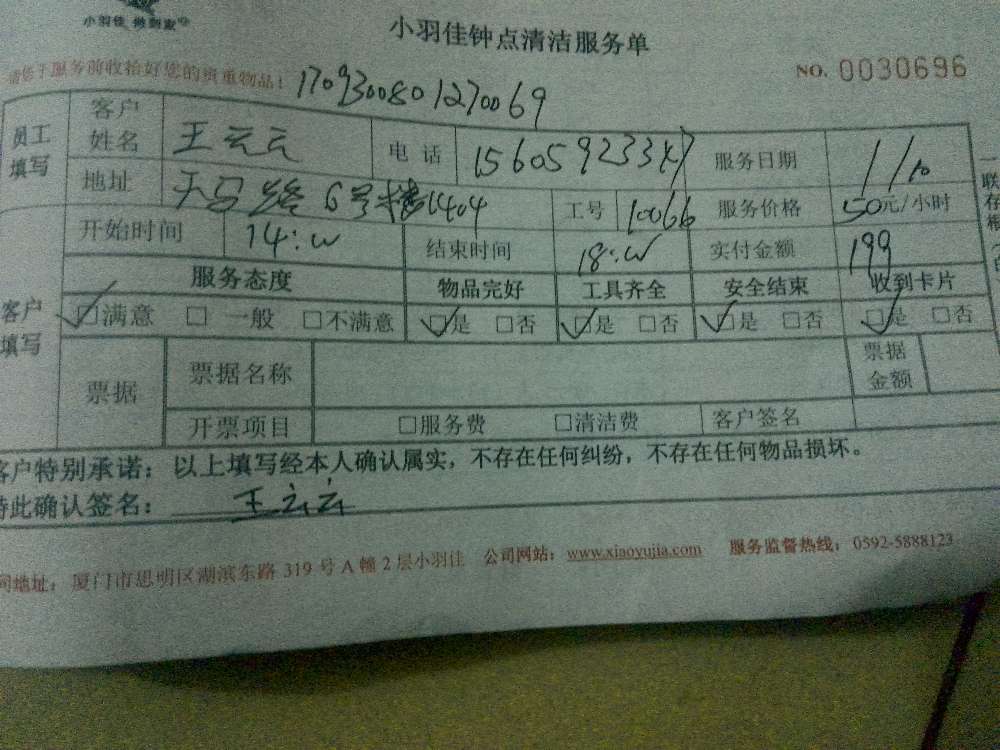 小羽佳 做到家
小羽佳钟点清洁服务单
请您于服务前收拾好您的贵重物品！ 1709300801270069 NO. 0030696
员工填写 客户姓名 王云云 电话 服务日期 1/10
地址 天马路6号楼1404 工号 10066 服务价格 50元/小时
开始时间 14: 结束时间 18: 实付金额 199
客户填写 服务态度 物品完好 工具齐全 安全结束 收到卡片
☑满意 □一般 □不满意 ☑是 □否 ☑是 □否 ☑是 □否 ☑是 □否
票据 票据名称 票据金额
开票项目 □服务费 □清洁费 客户签名
客户特别承诺：以上填写经本人确认属实，不存在任何纠纷，不存在任何物品损坏。
特此确认签名： 王云云
司地址：厦门市思明区湖滨东路 319 号 A 幢 2 层小羽佳 公司网站：www.xiaoyujia.com 服务监督热线：0592-5888123
一联存根